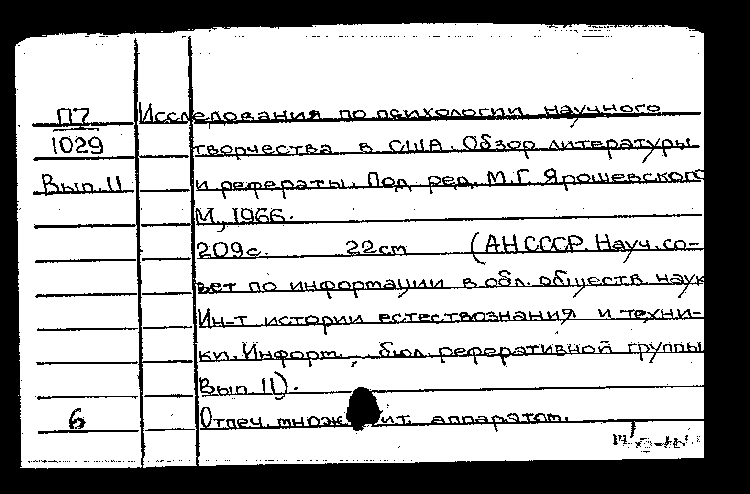 П7 Исследования по психологии научного
1029 творчества в США. Обзор литературы
Вып. 11 и рефераты. Под ред. М.Г. Ярошевского
М, 1966.
209с. 22см (АН СССР. Науч. со-
вет по информации в обл. обществ. наук
Ин-т истории естествознания и техни-
ки. Информ. бюл. реферативной группы
Вып. 11).
6 Отпеч. множит. аппаратом.